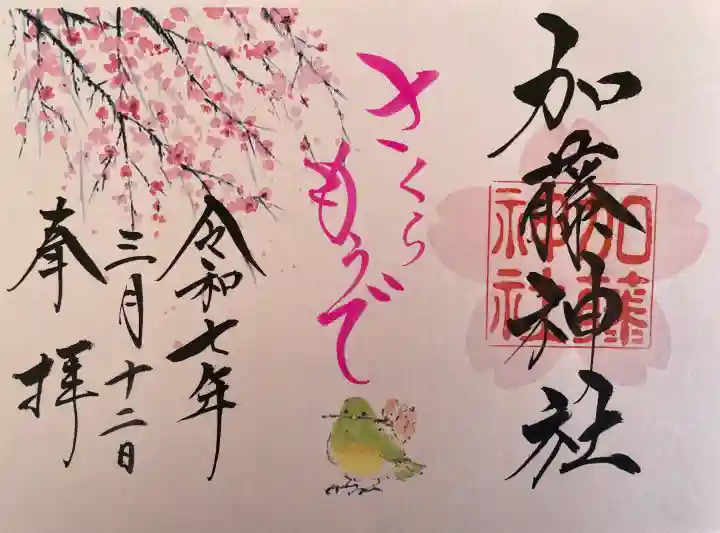 加藤神社
加藤
神社
さくら
もうで
令和七年
三月十二日
奉拝